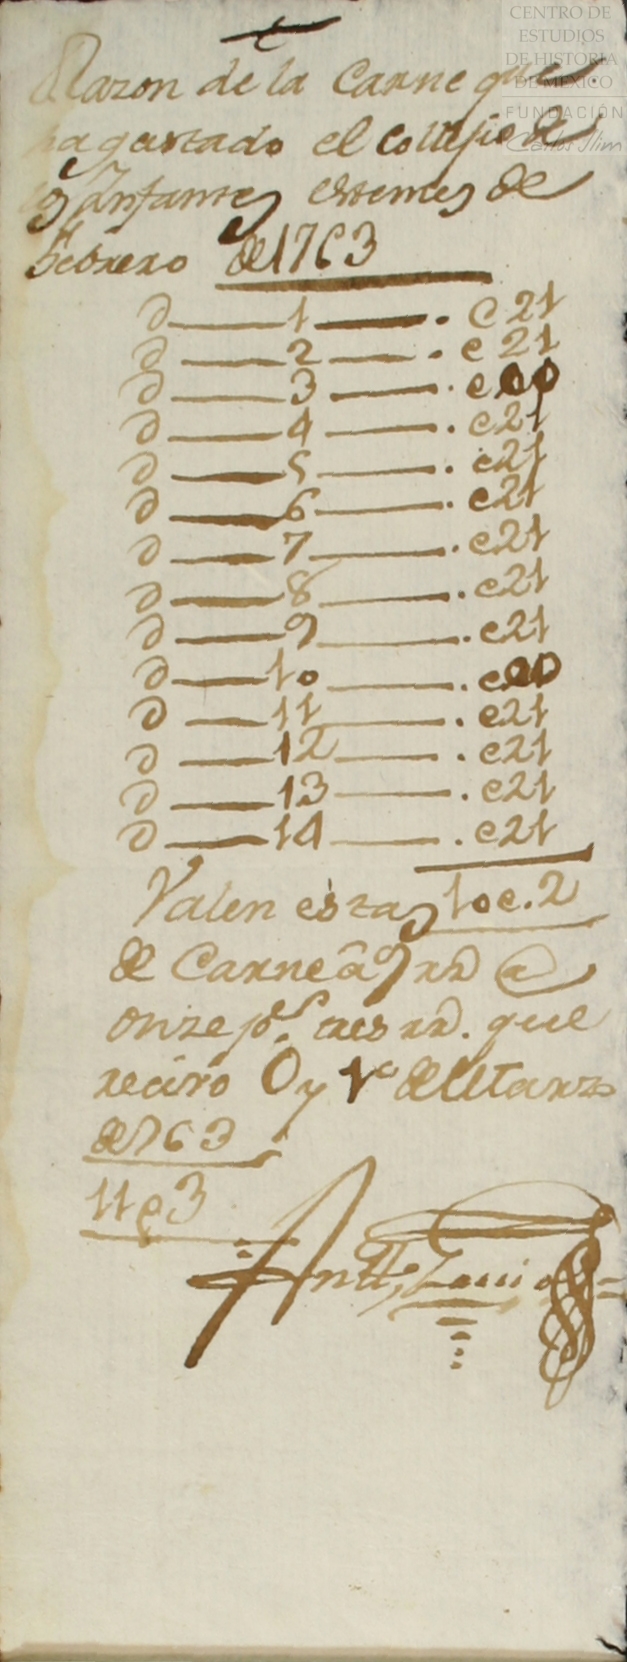 CENTRO DE
ESTUDIOS
DE HISTORIA
DE MÉXICO
FUNDACIÓN
Carlos Slim
Razon de la Carne que
ha gastado el collejio de
los Ynfantes estemes de
Febrero de 1763
D 1 . e 21
D 2 . e 21
D 3 . e 00
D 4 . e 21
D 5 . e 21
D 6 . e 21
D 7 . e 21
D 8 . e 21
D 9 . e 21
D 10 . e 00
D 11 . e 21
D 12 . e 21
D 13 . e 21
D 14 . e 21
Valen estas 10e.2
de Carne â 9 rr @
onze ps. tres rr. que
reciro Oy 1º de Marzo
de 763
11 e 3
Antto